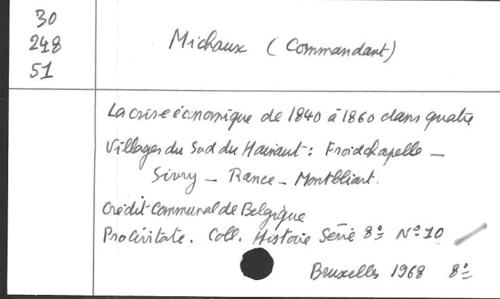 30
248
51
Michaux (Commandant)
La crise économique de 1840 à 1860 dans quatre
Villages du Sud du Hainaut : Froidchapelle -
Sivry - Rance - Montbliart.
Crédit Communal de Belgique
Pro Civitate. Coll. Histoire Série 8° N° 10
Bruxelles 1968 8°